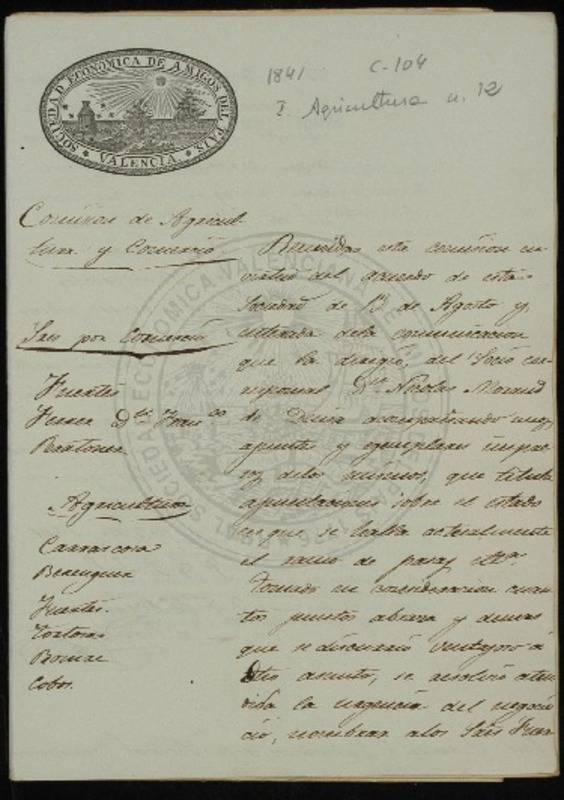 SOCIEDAD ECONOMICA DE AMIGOS DEL PAIS
VALENCIA
1841 C-104
I. Agricultura n. 12
Comision de Agricul-
tura y Comercio
Sres por Comercio
Fuentes
Ferrer Dn Franco
Agricultura
Carrascosa
Berenguer
Fuentes
Cobos.
Reunida esta comision en
virtud del acuerdo de esta
Sociedad de 13 de Agosto y
enterada dela comunicacion
que la dirigió, del Socio cor-
responsal Dn Nicolas Morand
de Denia acompañando unos
apuntes y ejemplares impre-
sos delos mismos, que titula
apuntaciones sobre el estado
en que se halla actualmente
el ramo de pasas
Tomado en consideracion cuan-
tos puntos abraza y demas
que se discurrió ventajoso á
dho asunto, se resolvió aten-
dida la urgencia del negocio
nombrar alos Sres